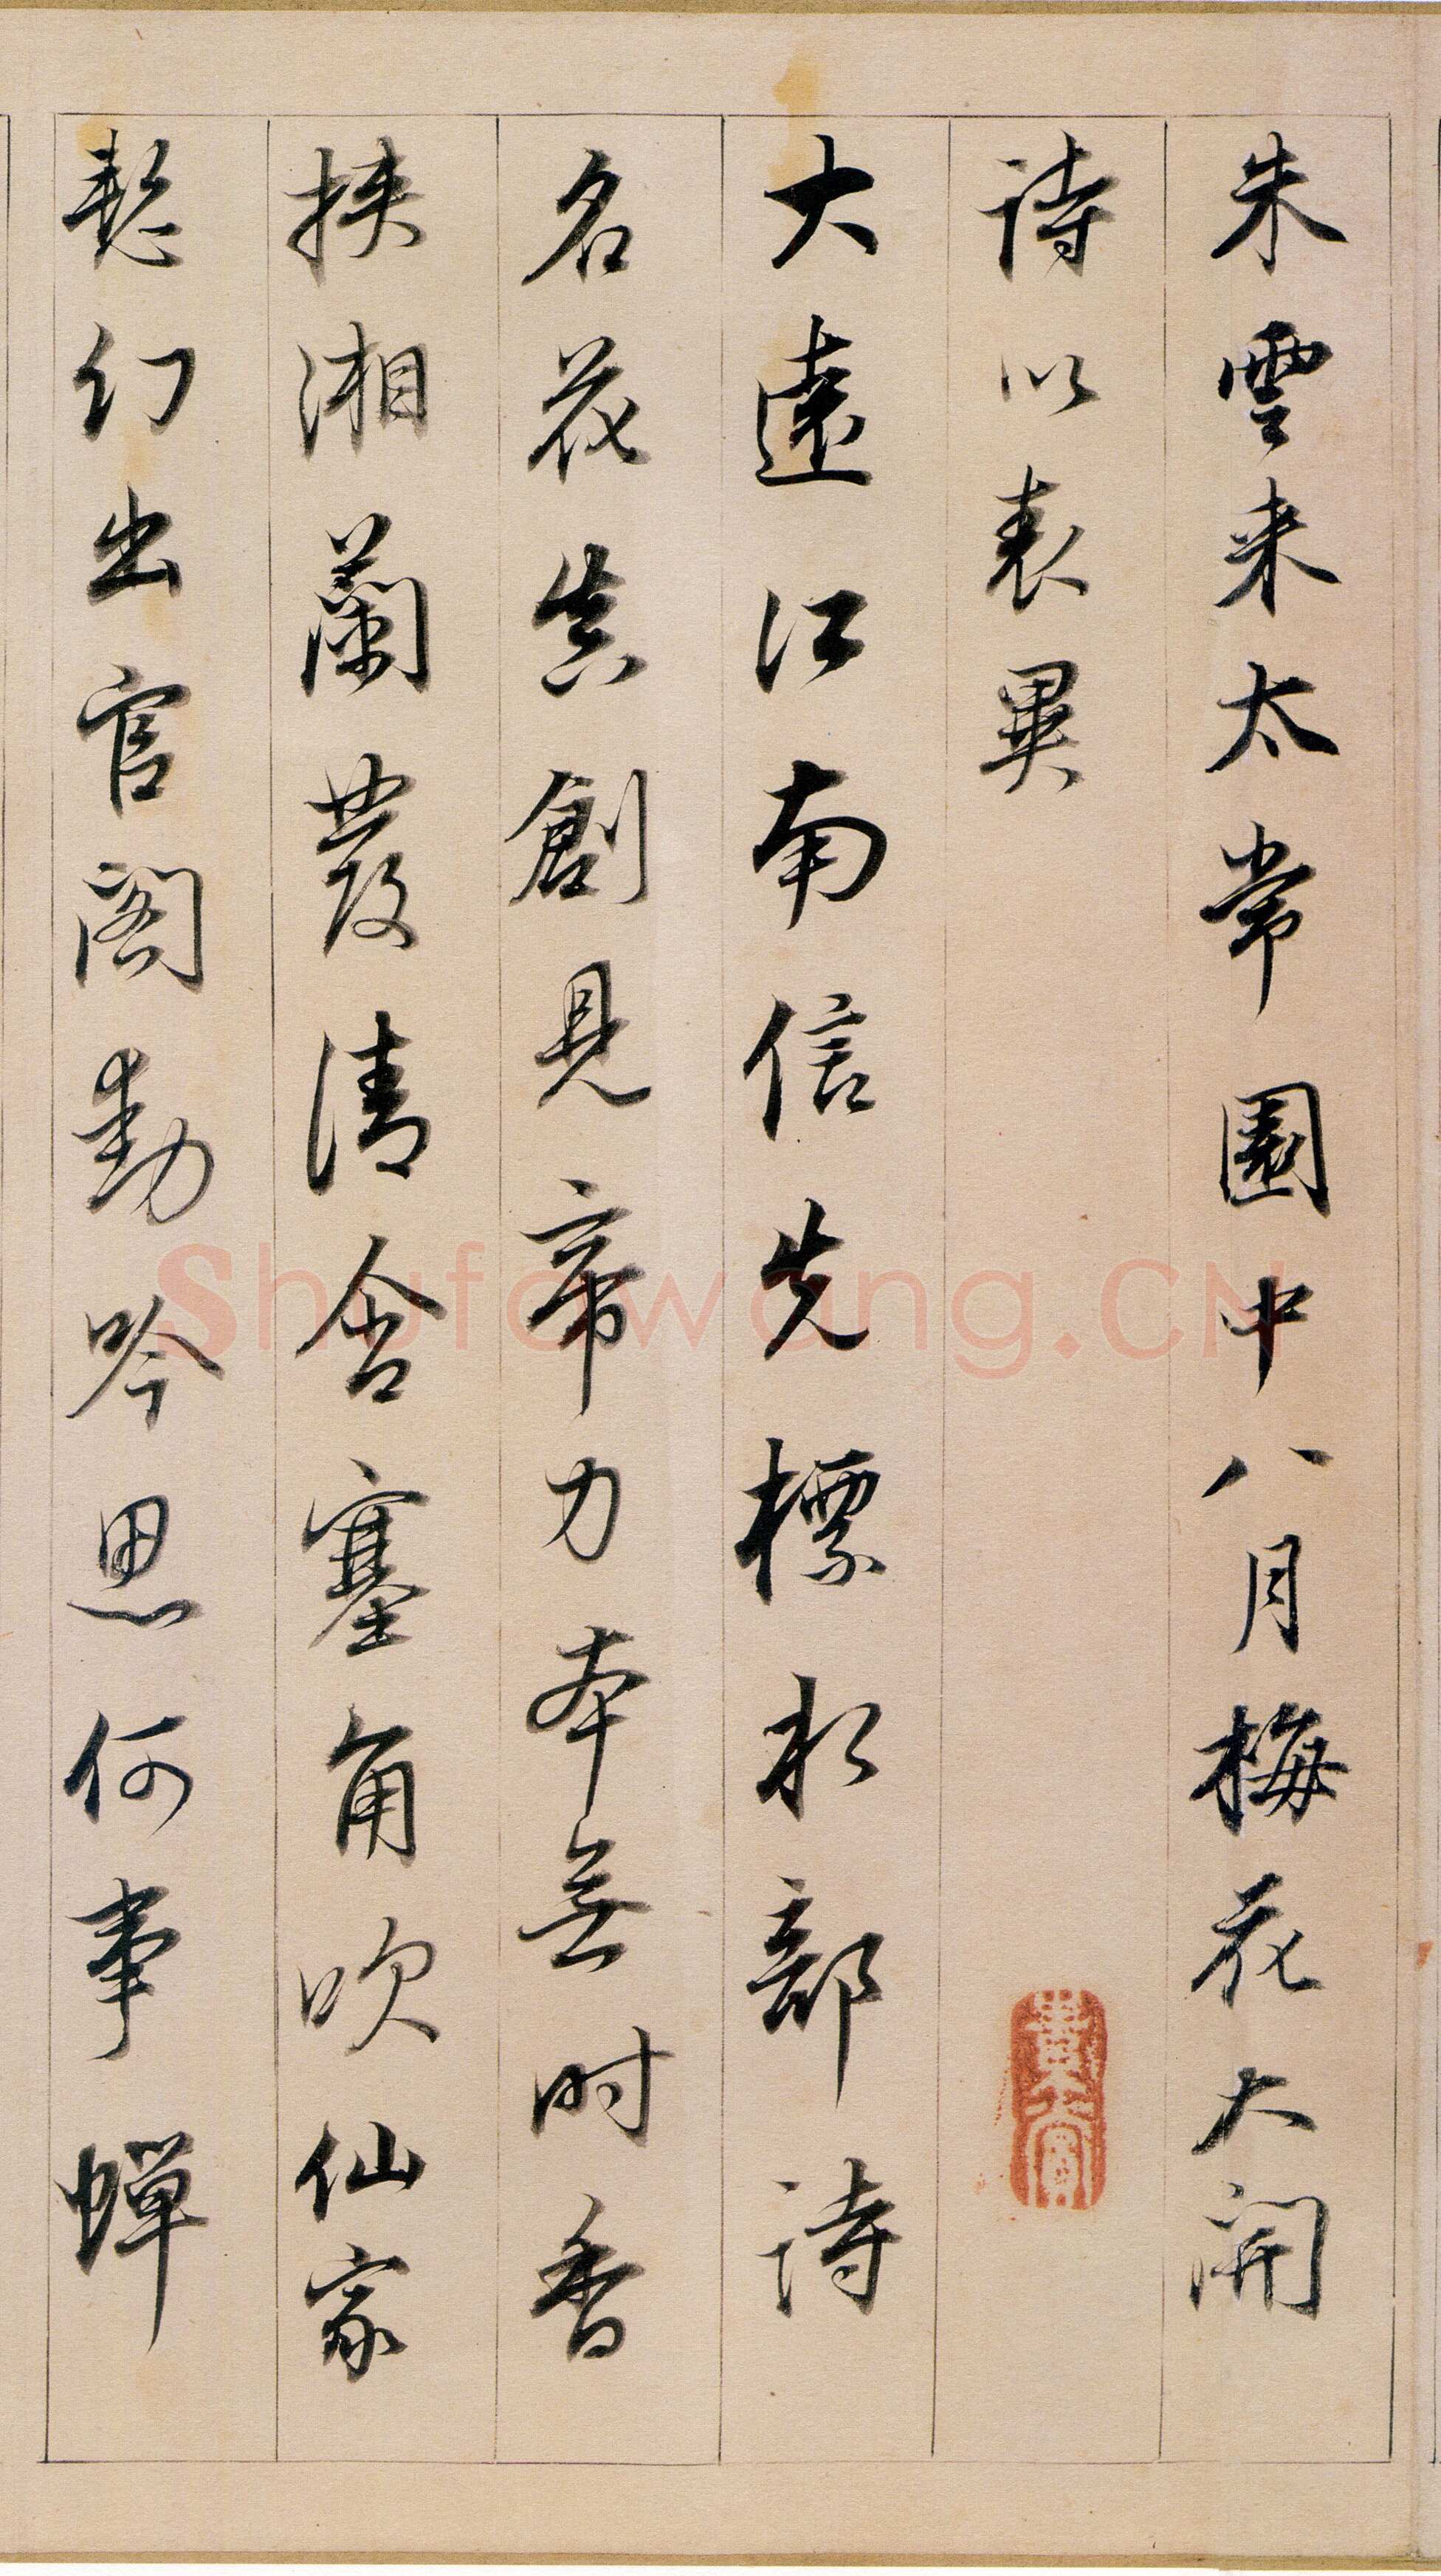 朱雲来太常園中八月梅花大開
詩以表異
大遠江南信先標水部詩
名花真創見帝力本無时香
挾湘蘭發清含塞角吹仙家
慙幻出官閣動吟思何事蟬
Shufawang.CN